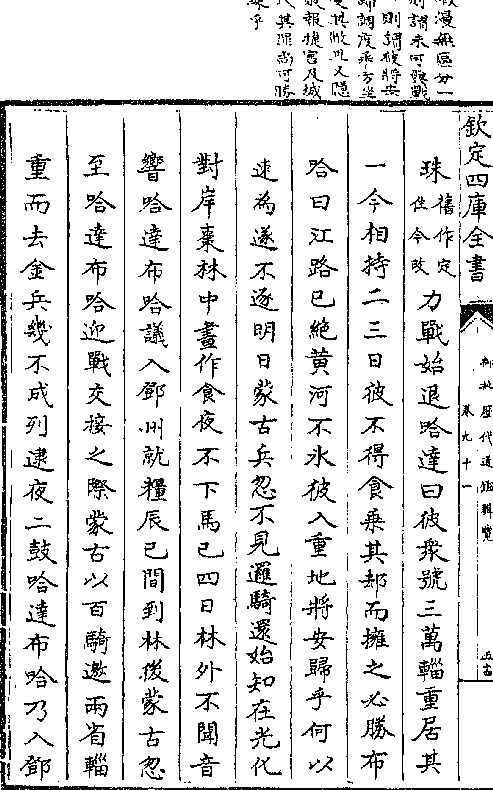 漫無區分一
則謂未可輕戰
則謂彼將安
歸調度乖方坐
受其敝且又隱
敗報捷害及城
其罪尚可勝
誅乎
欽定四庫全書
御批歷代通鑑輯覽
卷九十一
珠舊作定住今改力戰始退哈達曰彼衆號三萬輜重居其
一今相持二三日彼不得食乗其郤而擁之必勝布
哈曰江路已絶黄河不氷彼入重地將安歸乎何以
速為遂不逐明日蒙古兵忽不見邏騎還始知在光化
對岸棗林中晝作食夜不下馬已四日林外不聞音
響哈達布哈議入鄧州就糧辰巳間到林後蒙古忽
至哈達布哈迎戰交接之際蒙古以百騎邀兩省輜
重而去金兵幾不成列逮夜二鼓哈達布哈乃入鄧